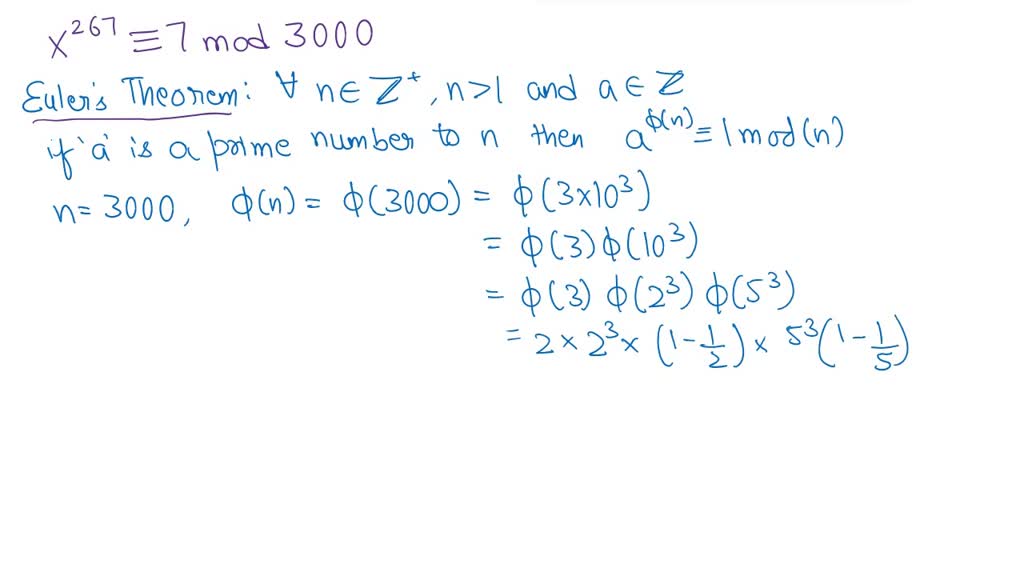 x^267 ≡ 7 mod 3000
Euler's Theorem: ∀ n ∈ Z^+, n>1 and a ∈ Z
if 'a' is a prime number to n then a^ϕ(n) ≡ 1 mod (n)
n = 3000, ϕ(n) = ϕ(3000) = ϕ(3×10^3)
= ϕ(3) ϕ(10^3)
= ϕ(3) ϕ(2^3) ϕ(5^3)
= 2 × 2^3 × (1 - 1/2) × 5^3 (1 - 1/5)